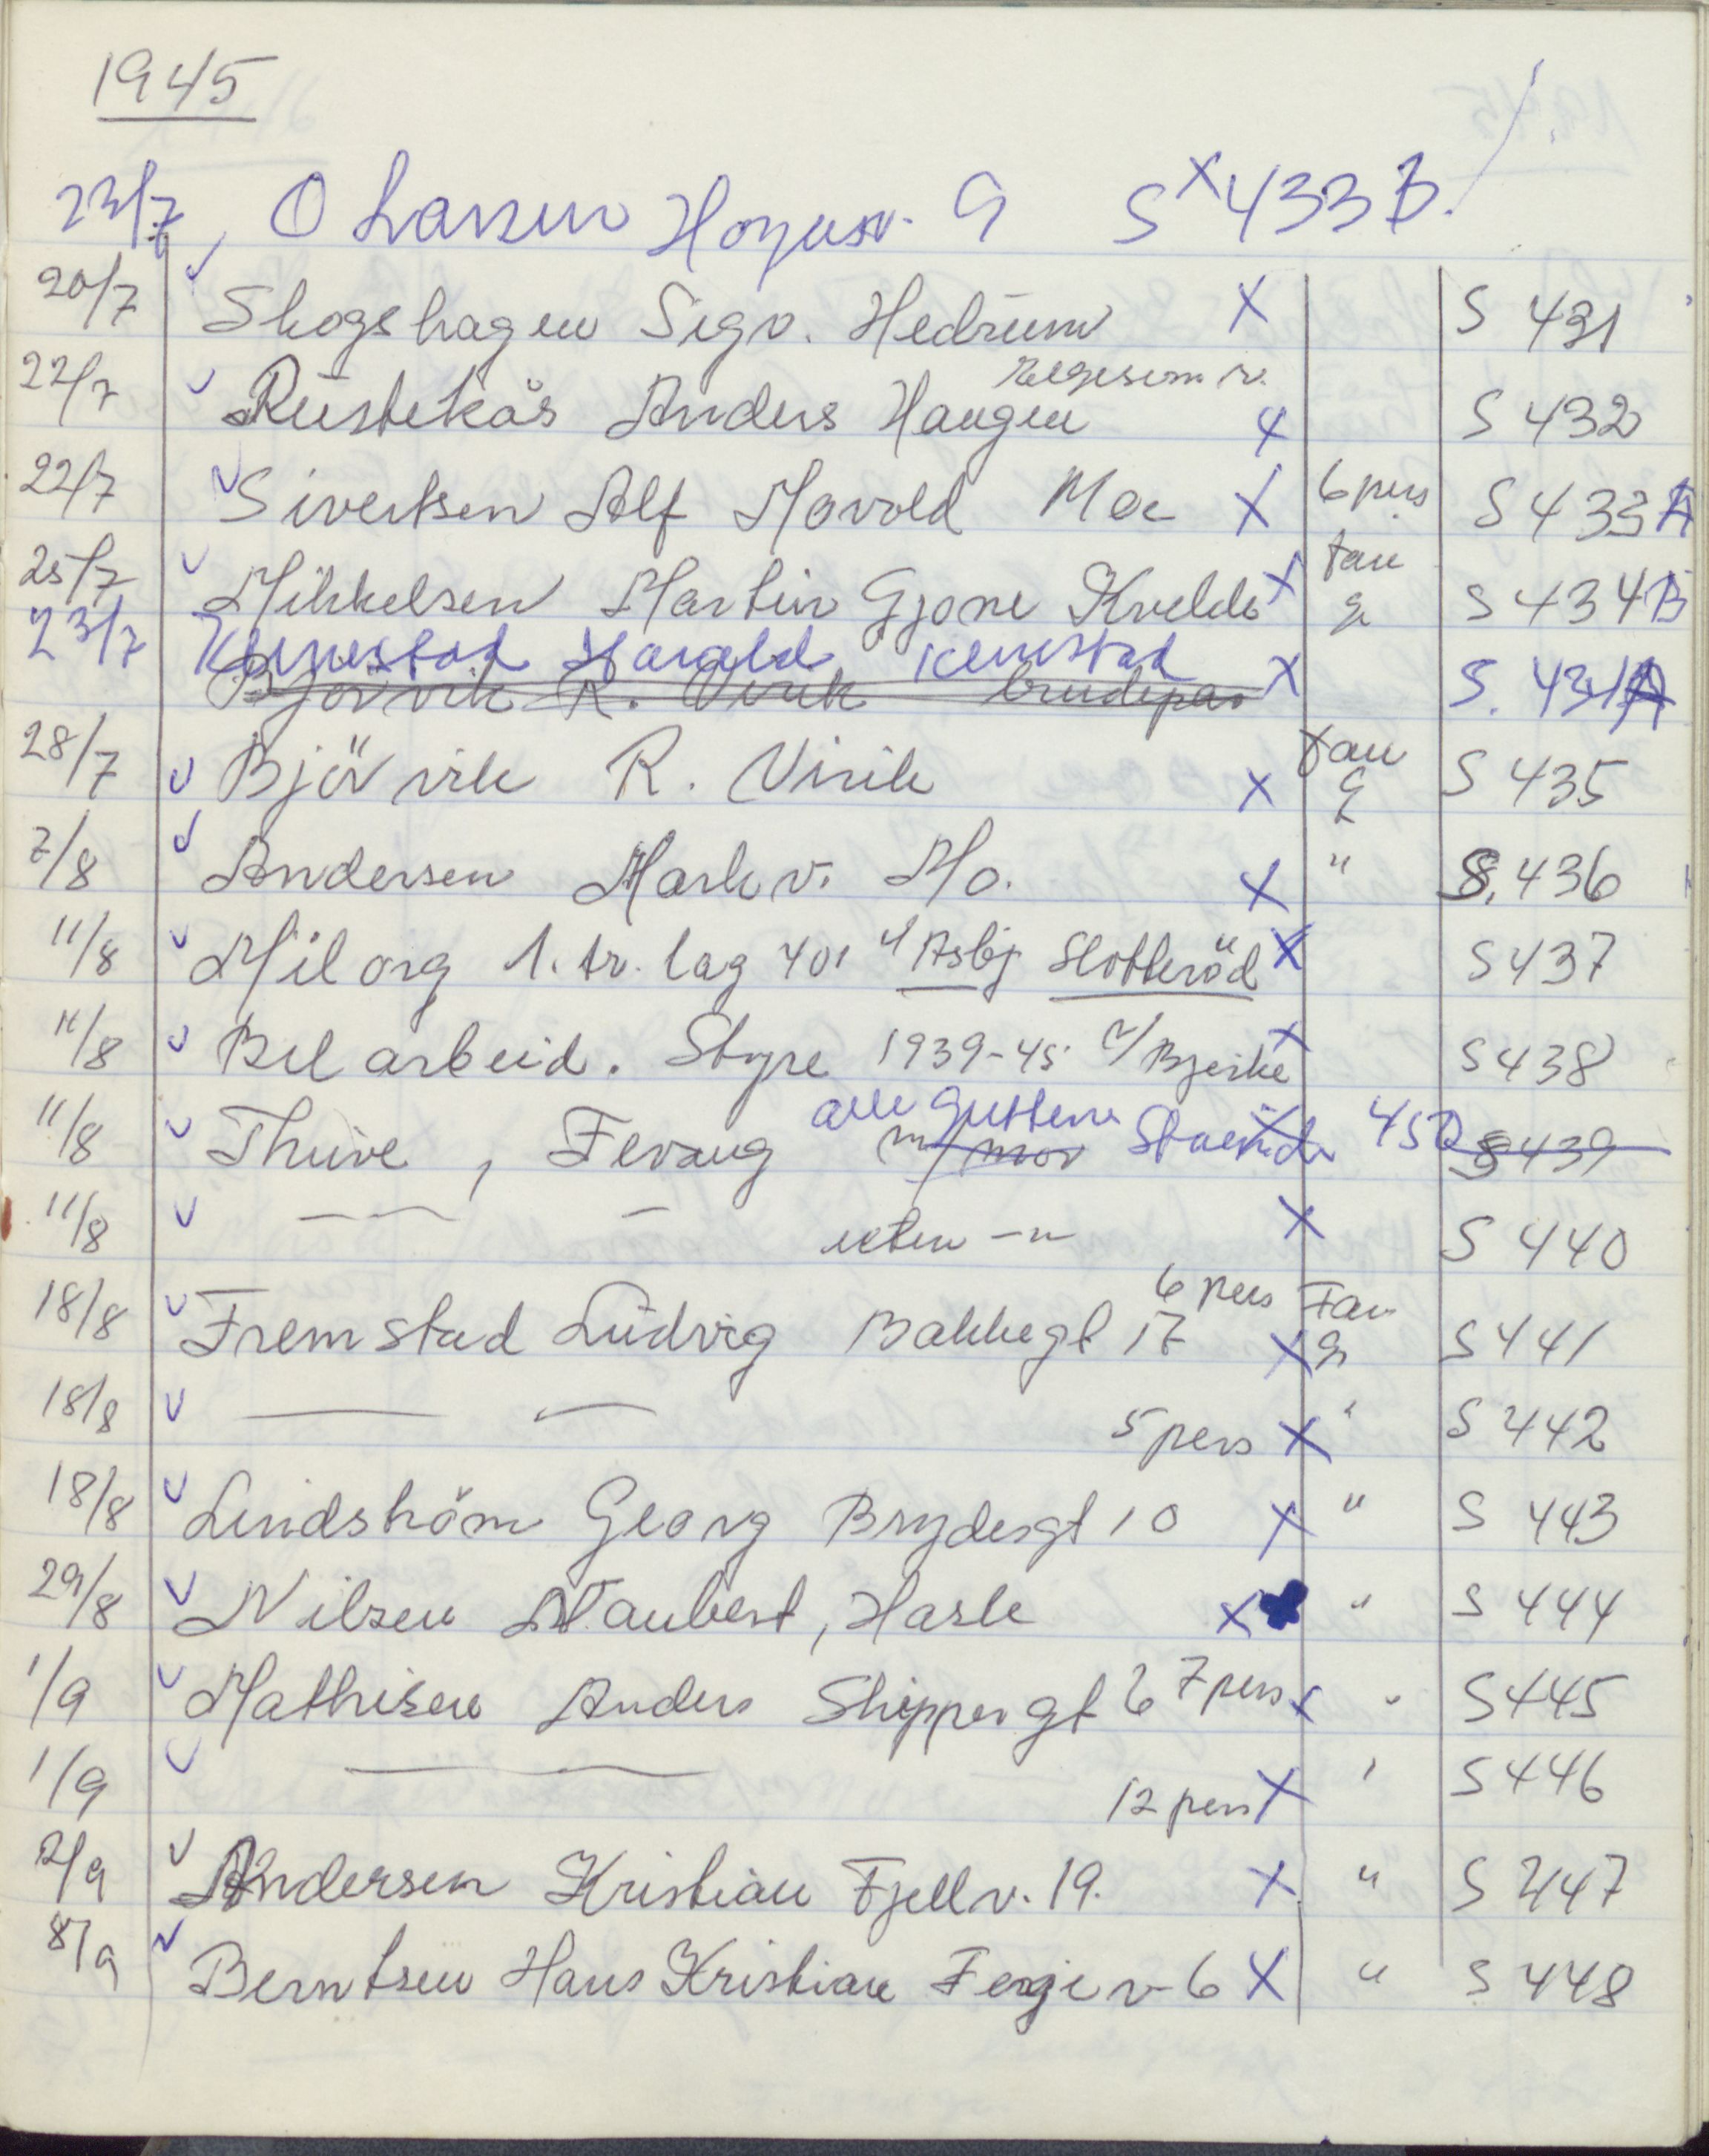 1945
23/7 O Larsen 9 S x 433 B.
20/7 Skogshagen Sigv. Hedrum X S 431
22/7 Rustekås Anders Haugen X S 432
22/7 Sivertsen Alf Havold Moe X 6 pers S 433 A
25/7 Mikkelsen Martin Gjone Kvelde X fam g S 434 B
23/7 Harald X S. 434 A
Bjørvik R. Virik brudepar
28/7 Bjövvik R. Virik X fam g S 435
7/8 Andersen Markv. Mo. X " S. 436
11/8 Milorg 1. tr. lag 401 v/ Asbj Slotteröd X S 437
11/8 Bel arbeid. Styre 1939-45 v/ Bjerke X S 438
11/8 Thuve, Fevang m/ mor alle guttene X 452 S 439
11/8 — — uten —"— X S 440
18/8 Fremstad Ludvig Bakkegt 17 6 pers X Fam g S 441
18/8 — — 5 pers X " S 442
18/8 Lindström Georg Brydesgt 10 X " S 443
29/8 Nilsen Taubert, Hasle X " S 444
1/9 Mathisen Anders Skippergt 6 7 pers X " S 445
1/9 — 12 pers X " S 446
2/9 Andersen Kristian Fjellv. 19. X " S 447
8/9 Berntsen Hans Kristian v 6 X " S 448